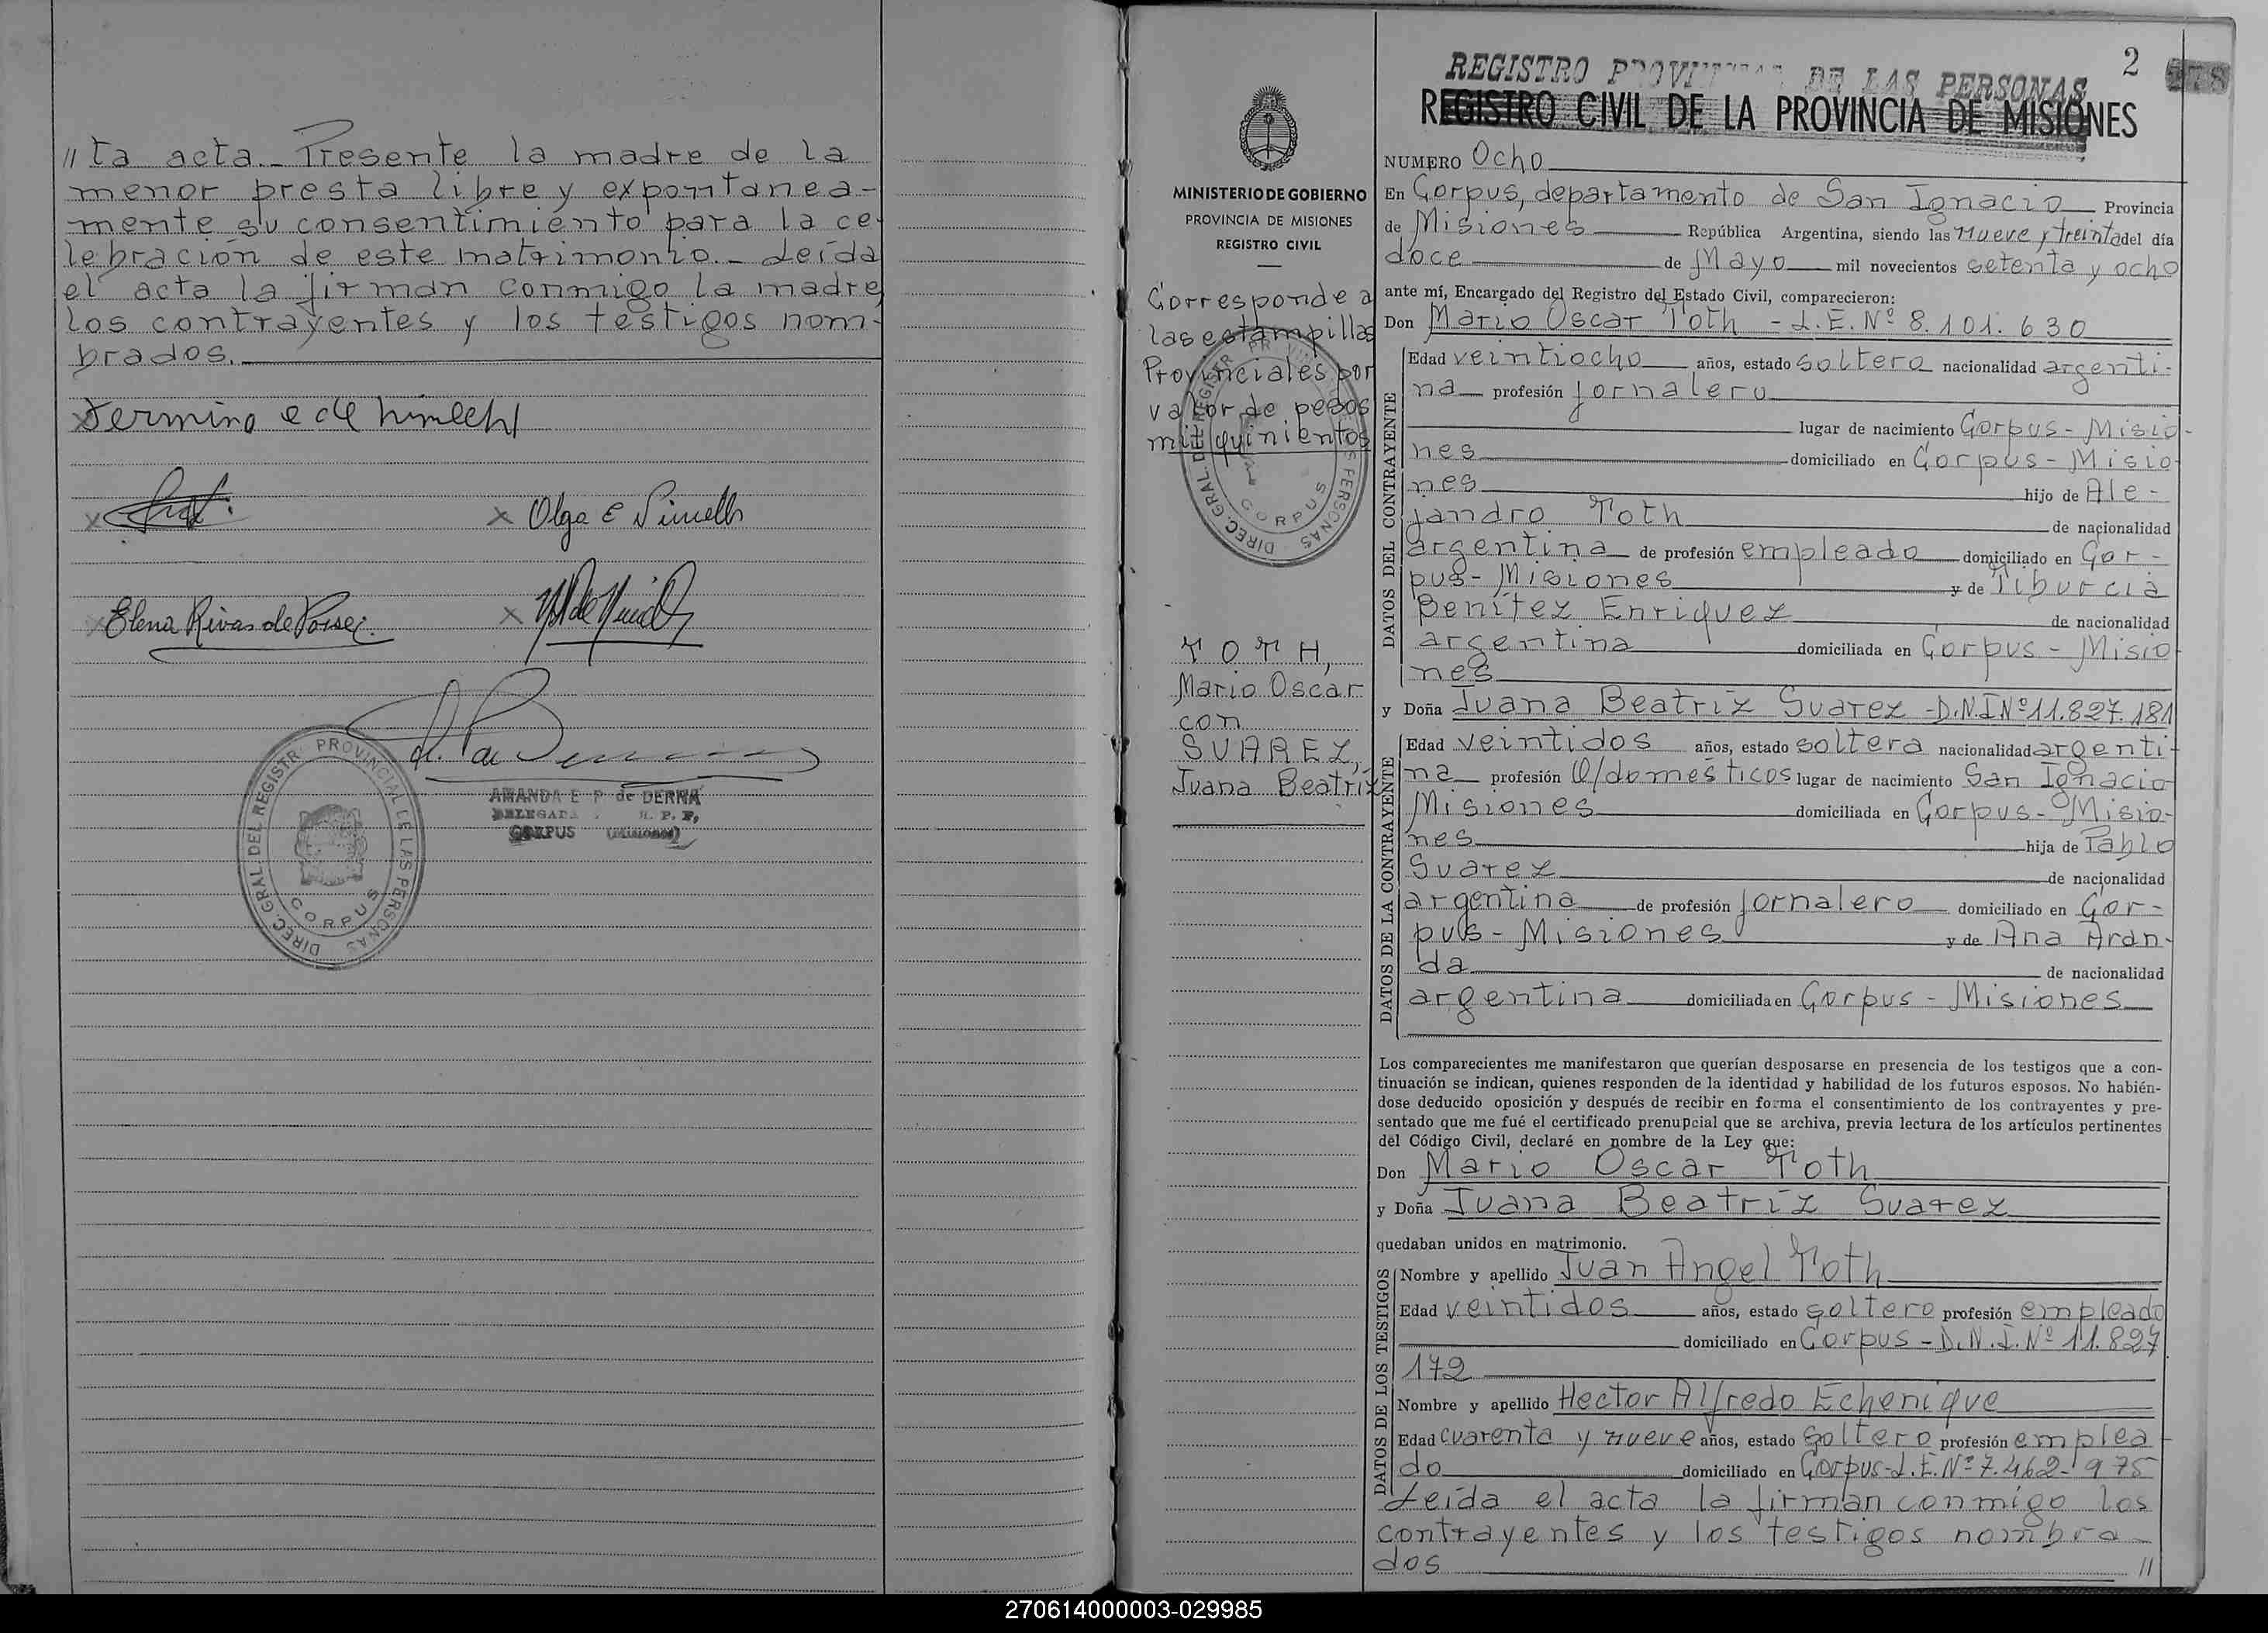 // ta acta._ Presente la madre de la
menor presta libre y expontanea-
mente su consentimiento para la ce-
lebración de este matrimonio._ Leída
el acta la firman conmigo la madre,
los contrayentes y los testigos nom-
brados.
x
x x Olga E
x Elena Rivas de x
DIREC. GRAL. DEL REGISTR. PROVINCIAL DE LAS PERSONAS
CORPUS
AMANDA E P de DERNA
DELEGADA R. P. P,
CORPUS (Misiones)
2
REGISTRO PROVINCIAL DE LAS PERSONAS
REGISTRO CIVIL DE LA PROVINCIA DE MISIONES
MINISTERIO DE GOBIERNO
PROVINCIA DE MISIONES
REGISTRO CIVIL
Corresponde a
las estampillas
Provinciales por
valor de pesos
mil quinientos
DIREC. GRAL. DEL REGISTR PROVINCIAL DE LAS PERSONAS
CORPUS
TOTH,
Mario Oscar
con
SUAREZ,
Juana Beatriz
NUMERO Ocho
En Corpus, departamento de San Ignacio Provincia
de Misiones República Argentina, siendo las nueve y treinta del día
doce de Mayo mil novecientos setenta y ocho
ante mí, Encargado del Registro del Estado Civil, comparecieron:
Don Mario Oscar Toth - L.E.Nº 8.101.630
DATOS DEL CONTRAYENTE
Edad veintiocho años, estado soltero nacionalidad argenti-
na profesión jornalero
lugar de nacimiento Corpus - Misio-
nes domiciliado en Corpus - Misio
nes hijo de Ale-
jandro Toth de nacionalidad
argentina de profesión empleado domiciliado en Cor-
pus - Misiones y de Tiburcia
Benítez Enriquez de nacionalidad
argentina domiciliada en Corpus - Misio
nes
y Doña Juana Beatriz Suarez - D.N.I Nº 11.827.181
DATOS DE LA CONTRAYENTE
Edad veintidos años, estado soltera nacionalidad argenti-
na profesión Q/domesticos lugar de nacimiento San Ignacio
Misiones domiciliada en Corpus - Misio-
nes hija de Pablo
Suarez de nacionalidad
argentina de profesión jornalero domiciliado en Cor-
pus - Misiones y de Ana Aran-
da de nacionalidad
argentina domiciliada en Corpus - Misiones
Los comparecientes me manifestaron que querían desposarse en presencia de los testigos que a con-
tinuación se indican, quienes responden de la identidad y habilidad de los futuros esposos. No habién-
dose deducido oposición y después de recibir en forma el consentimiento de los contrayentes y pre-
sentado que me fué el certificado prenupcial que se archiva, previa lectura de los artículos pertinentes
del Código Civil, declaré en nombre de la Ley que:
Don Mario Oscar Toth
y Doña Juana Beatriz Suarez
quedaban unidos en matrimonio.
DATOS DE LOS TESTIGOS
Nombre y apellido Juan Angel Toth
Edad veintidos años, estado soltero profesión empleado
domiciliado en Corpus - D.N.I. Nº 11.827
172
Nombre y apellido Hector Alfredo Echenique
Edad cuarenta y nueve años, estado soltero profesión emplea
do domiciliado en Corpus - L.E. Nº 7.462.975
Leída el acta la firman conmigo los
contrayentes y los testigos nombra
dos //
270614000003-029985